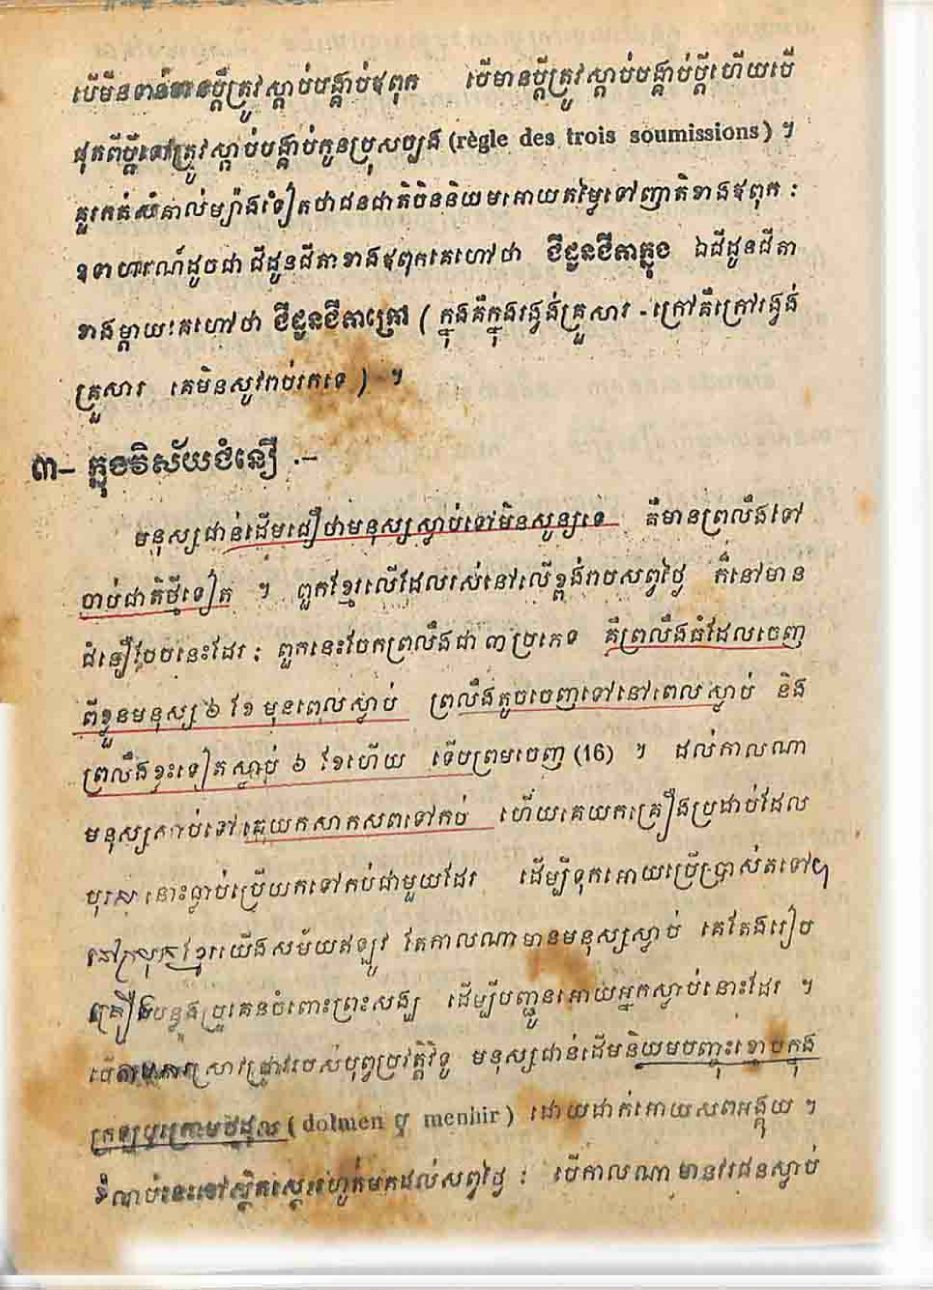 បើមិនទាន់មានប្តីត្រូវស្តាប់បង្គាប់ឪពុក បើមានប្តីត្រូវស្តាប់បង្គាប់ប្តីហើយបើ
ផុតពីប្តីទៅត្រូវស្តាប់បង្គាប់កូនប្រុសច្បង (règle des trois soumissions) ។
គួរកត់សំគាល់ម្យ៉ាងទៀតថាជនជាតិចិននិយមអោយតម្លៃទៅញាតិខាងឪពុក :
ឧទាហរណ៍ដូចជា ជីដូនជីតាខាងឪពុកគេហៅថា ជីដូនជីតាក្នុង ឯជីដូនជីតា
ខាងម្តាយគេហៅថា ជីដូនជីតាក្រៅ ( ក្នុងគឺក្នុងរង្វង់គ្រួសារ - ក្រៅគឺក្រៅរង្វង់
គ្រួសារ គេមិនសូវរាប់រកទេ ) ។
៣– ក្នុងវិស័យជំនឿ .–
មនុស្សជាន់ដើមជឿថាមនុស្សស្លាប់ទៅមិនសូន្យទេ គឺមានព្រលឹងទៅ
ចាប់ជាតិថ្មីទៀត ។ ពួកខ្មែរលើដែលរស់នៅលើខ្ពង់រាបសព្វថ្ងៃ ក៏នៅមាន
ជំនឿបែបនេះដែរ : ពួកនេះចែកព្រលឹងជា ៣ ប្រភេទ គឺព្រលឹងធំដែលចេញ
ពីខ្លួនមនុស្ស ៦ ខែ មុនពេលស្លាប់ ព្រលឹងតូចចេញទៅនៅពេលស្លាប់ និង
ព្រលឹងខ្លះទៀតស្លាប់ ៦ ខែហើយ ទើបព្រមចេញ (16) ។ ដល់កាលណា
មនុស្សស្លាប់ទៅគេយកសាកសពទៅកប់ ហើយគេយកគ្រឿងប្រដាប់ដែល
បុរស នោះធ្លាប់ប្រើយកទៅកប់ជាមួយដែរ ដើម្បីទុកអោយប្រើប្រាស់តទៅ។
នៅស្រុកខ្មែរយើងសម័យឥឡូវ តែកាលណាមានមនុស្សស្លាប់ គេតែងរៀប
គ្រឿងបន្លងប្រគេនចំពោះព្រះសង្ឃ ដើម្បីបញ្ជូនអោយអ្នកស្លាប់នោះដែរ ។
បើតាមការស្រាវជ្រាវរបស់បុព្វប្រវត្តិវិទូ មនុស្សជាន់ដើមនិយមបញ្ចុះខ្មោចក្នុង
ក្រឡឬក្រោមថ្មដុល ( dolmen ឬ menhir ) ដោយដាក់អោយសពអង្គុយ ។
ទំលាប់នេះនៅស្ថិតស្ថេរហូតមកដល់សព្វថ្ងៃ : បើកាលណាមានវរជនស្លាប់